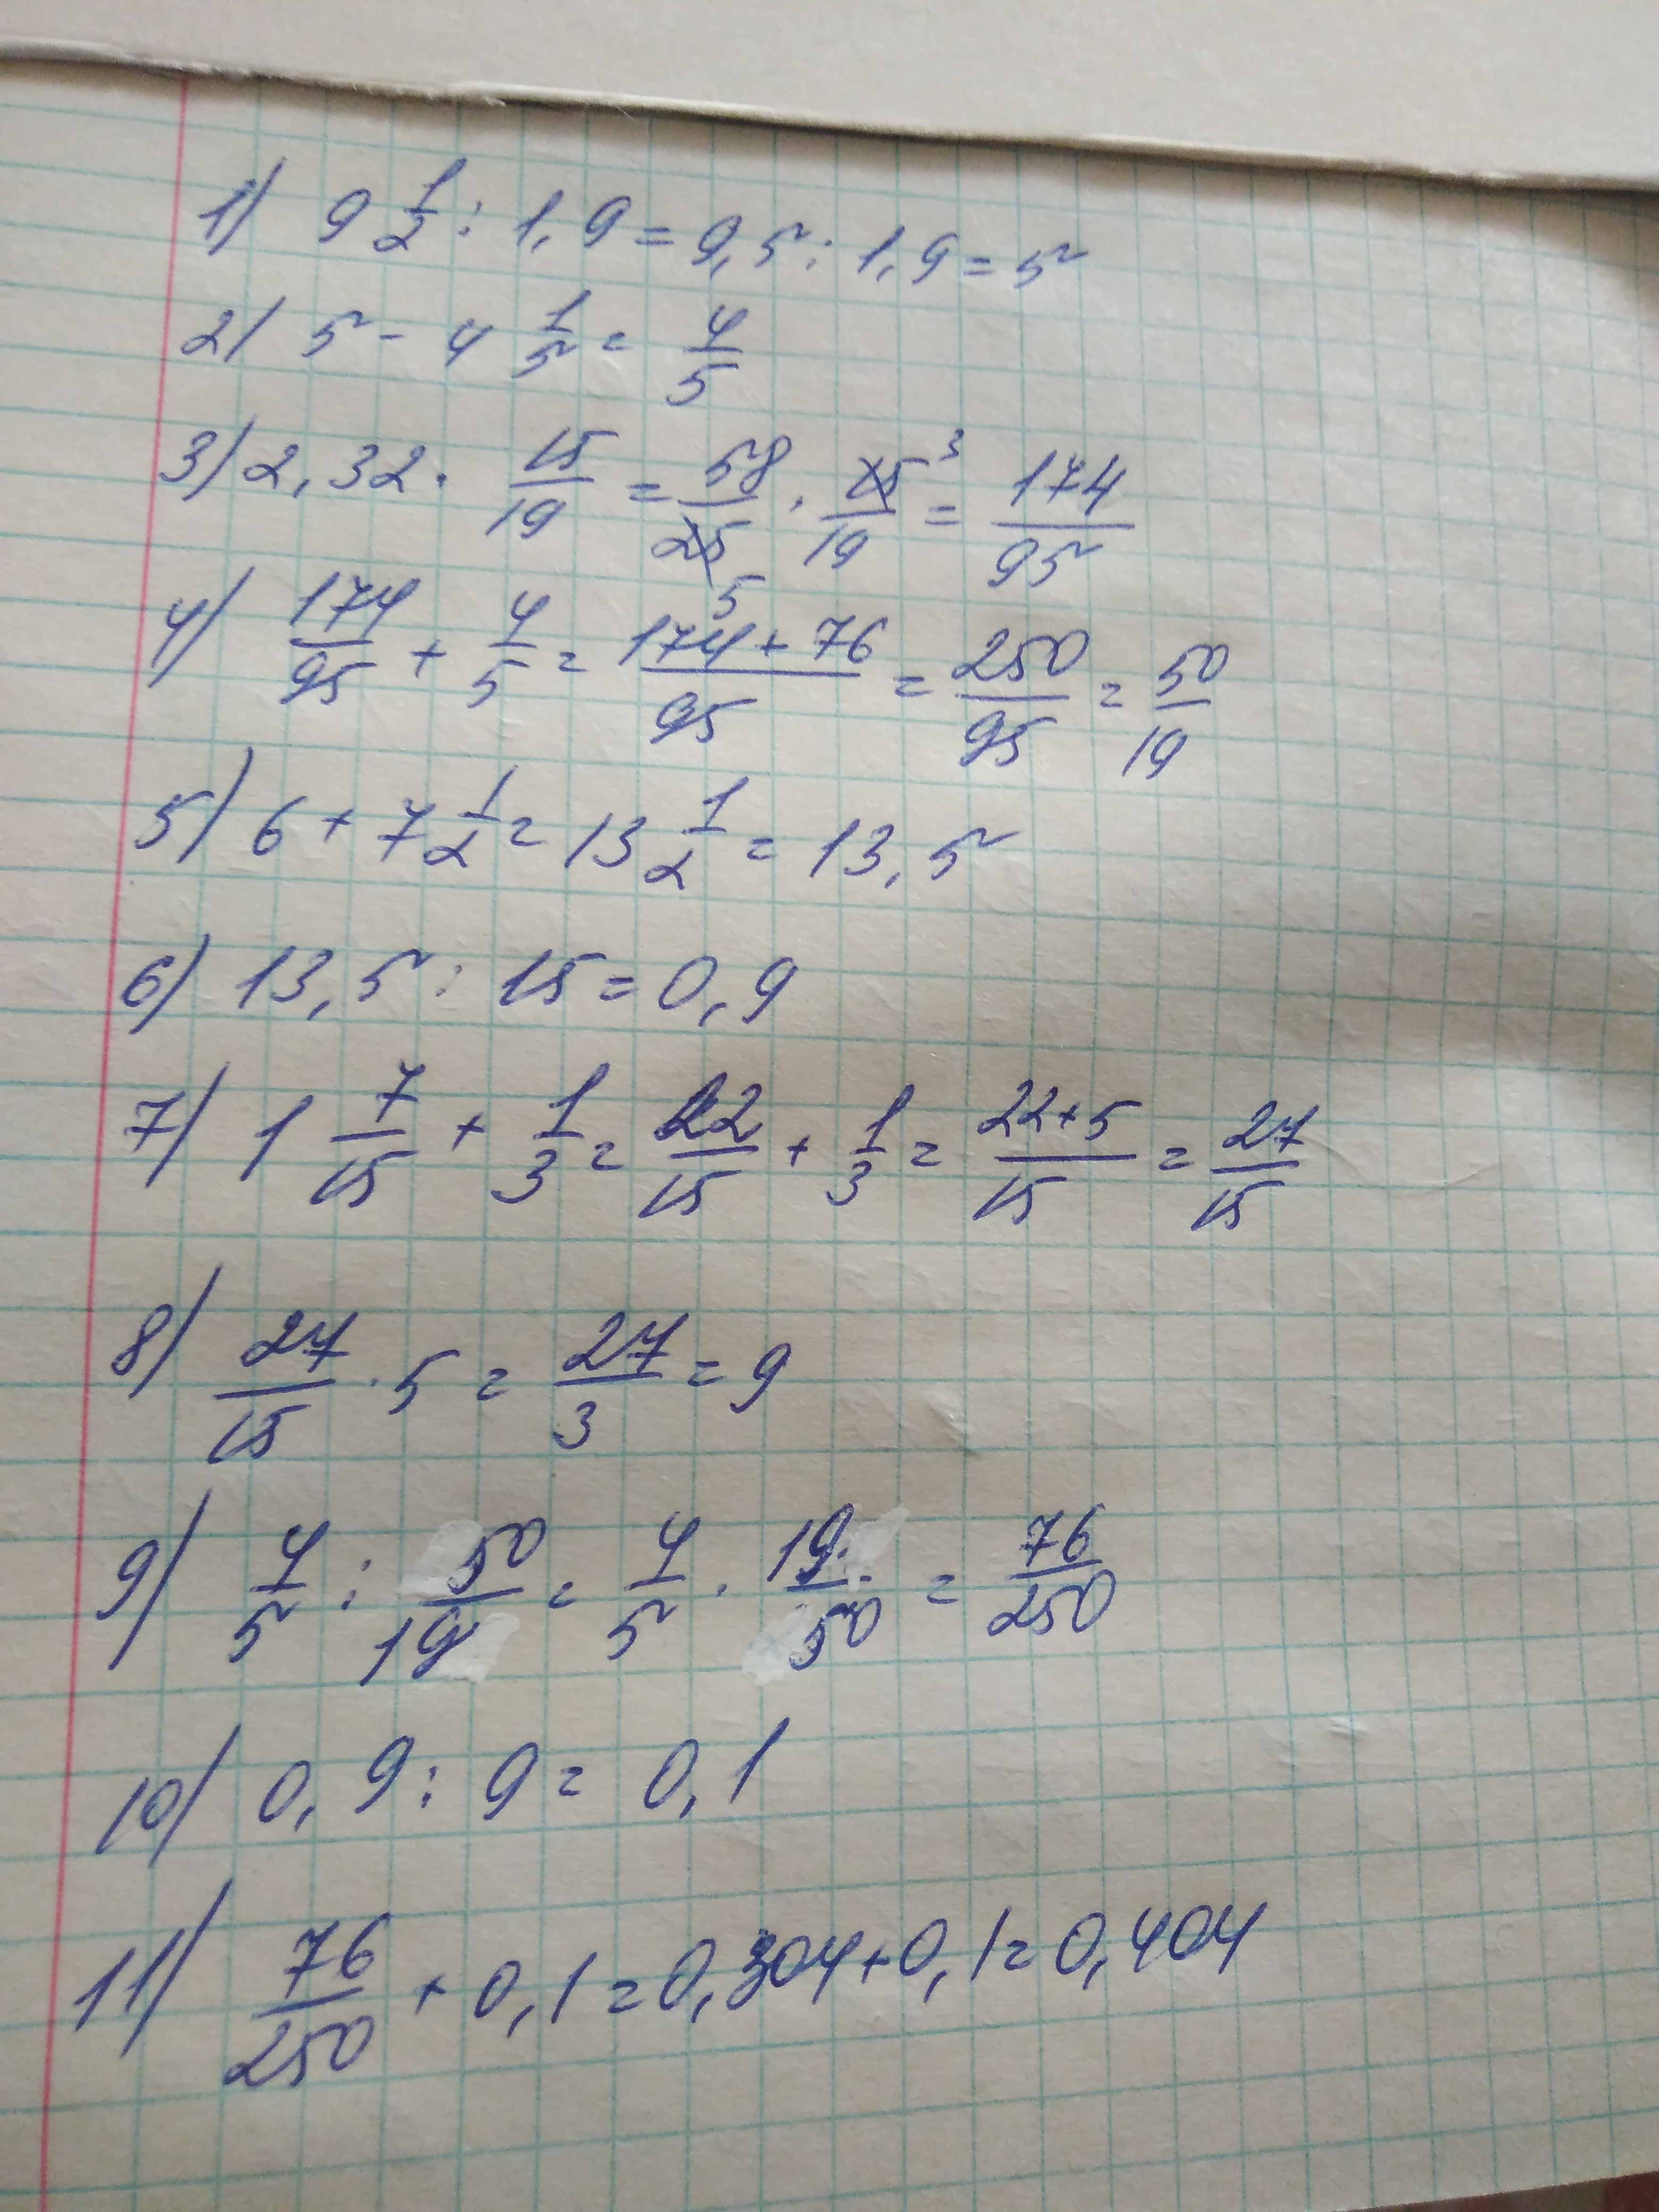 1) 9 1/2 : 1,9 = 9,5 : 1,9 = 5
2) 5 - 4 1/5 = 4/5
3) 2,32 · 15/19 = 58/25 5 · 15/19 3 = 174/95
4) 174/95 + 4/5 = 174+76/95 = 250/95 = 50/19
5) 6 + 7 1/2 = 13 1/2 = 13,5
6) 13,5 : 15 = 0,9
7) 1 7/15 + 1/3 = 22/15 + 1/3 = 22+5/15 = 27/15
8) 27/15 · 5 = 27/3 = 9
9) 4/5 : 50/19 = 4/5 · 19/50 = 76/250
10) 0,9 : 9 = 0,1
11) 76/250 + 0,1 = 0,304 + 0,1 = 0,404